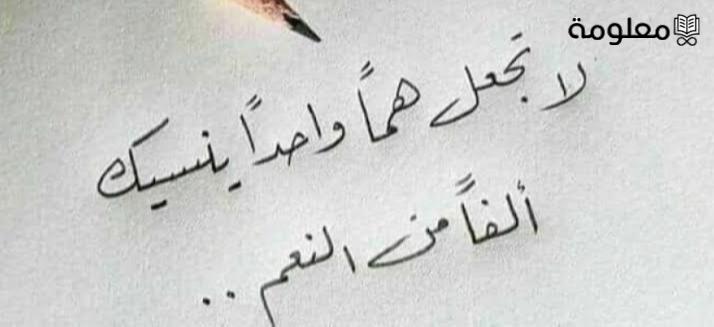 معلومة
لا تجعل هماً واحداً ينسيك
ألفاً من النعم ..